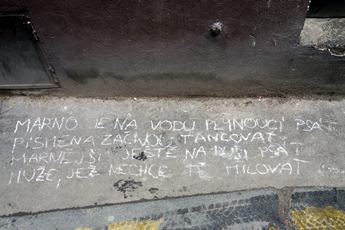 MARNO JE NA VODU PLYNOUCÍ PSÁT,
PÍSMENA ZAČNOU TANCOVAT.
MARNĚJŠÍ JEŠTĚ NA DUŠI PSÁT
MUŽE, JEŽ NECHCE TĚ MILOVAT